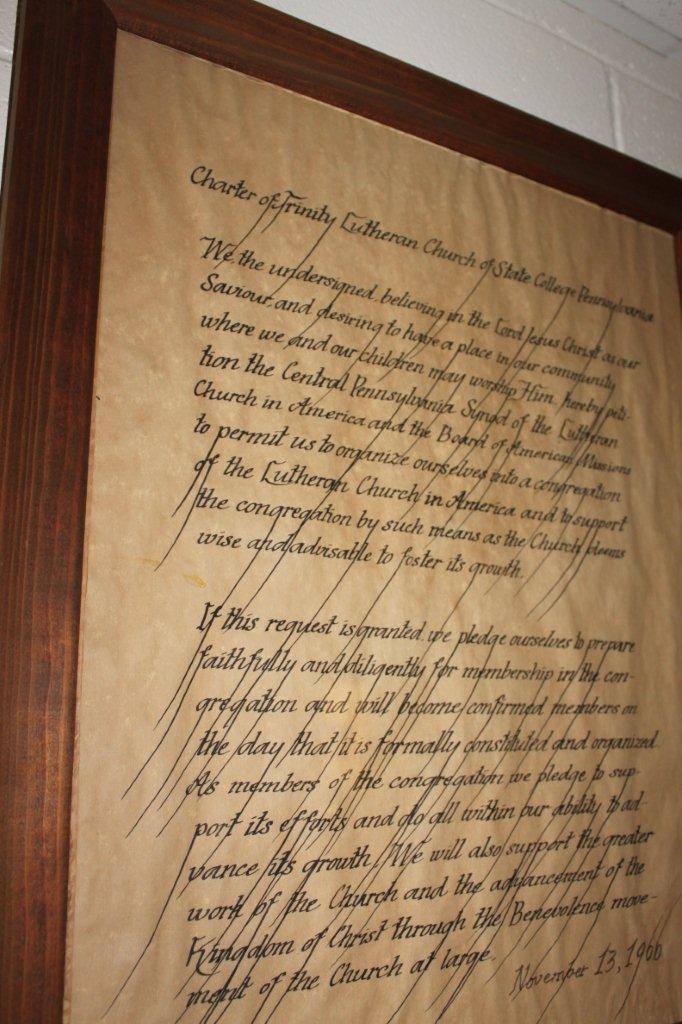 Charter of Trinity Lutheran Church of State College Pennsylvania
We, the undersigned, believing in the Lord Jesus Christ as our
Saviour, and desiring to have a place in our community
where we, and our children may worship Him, hereby peti-
tion the Central Pennsylvania Synod of the Lutheran
Church in America and the Board of American Missions
to permit us to organize ourselves into a congregation
of the Lutheran Church in America and to support
the congregation by such means as the Church deems
wise and advisable to foster its growth.
If this request is granted, we pledge ourselves to prepare
faithfully and diligently for membership in the con-
gregation and will become confirmed members on
the day that it is formally constituted and organized.
As members of the congregation, we pledge to sup-
port its efforts and do all within our ability to ad-
vance its growth. We will also support the greater
work of the Church and the advancement of the
Kingdom of Christ through the Benevolence move-
ment of the Church at large.
November 13, 1966